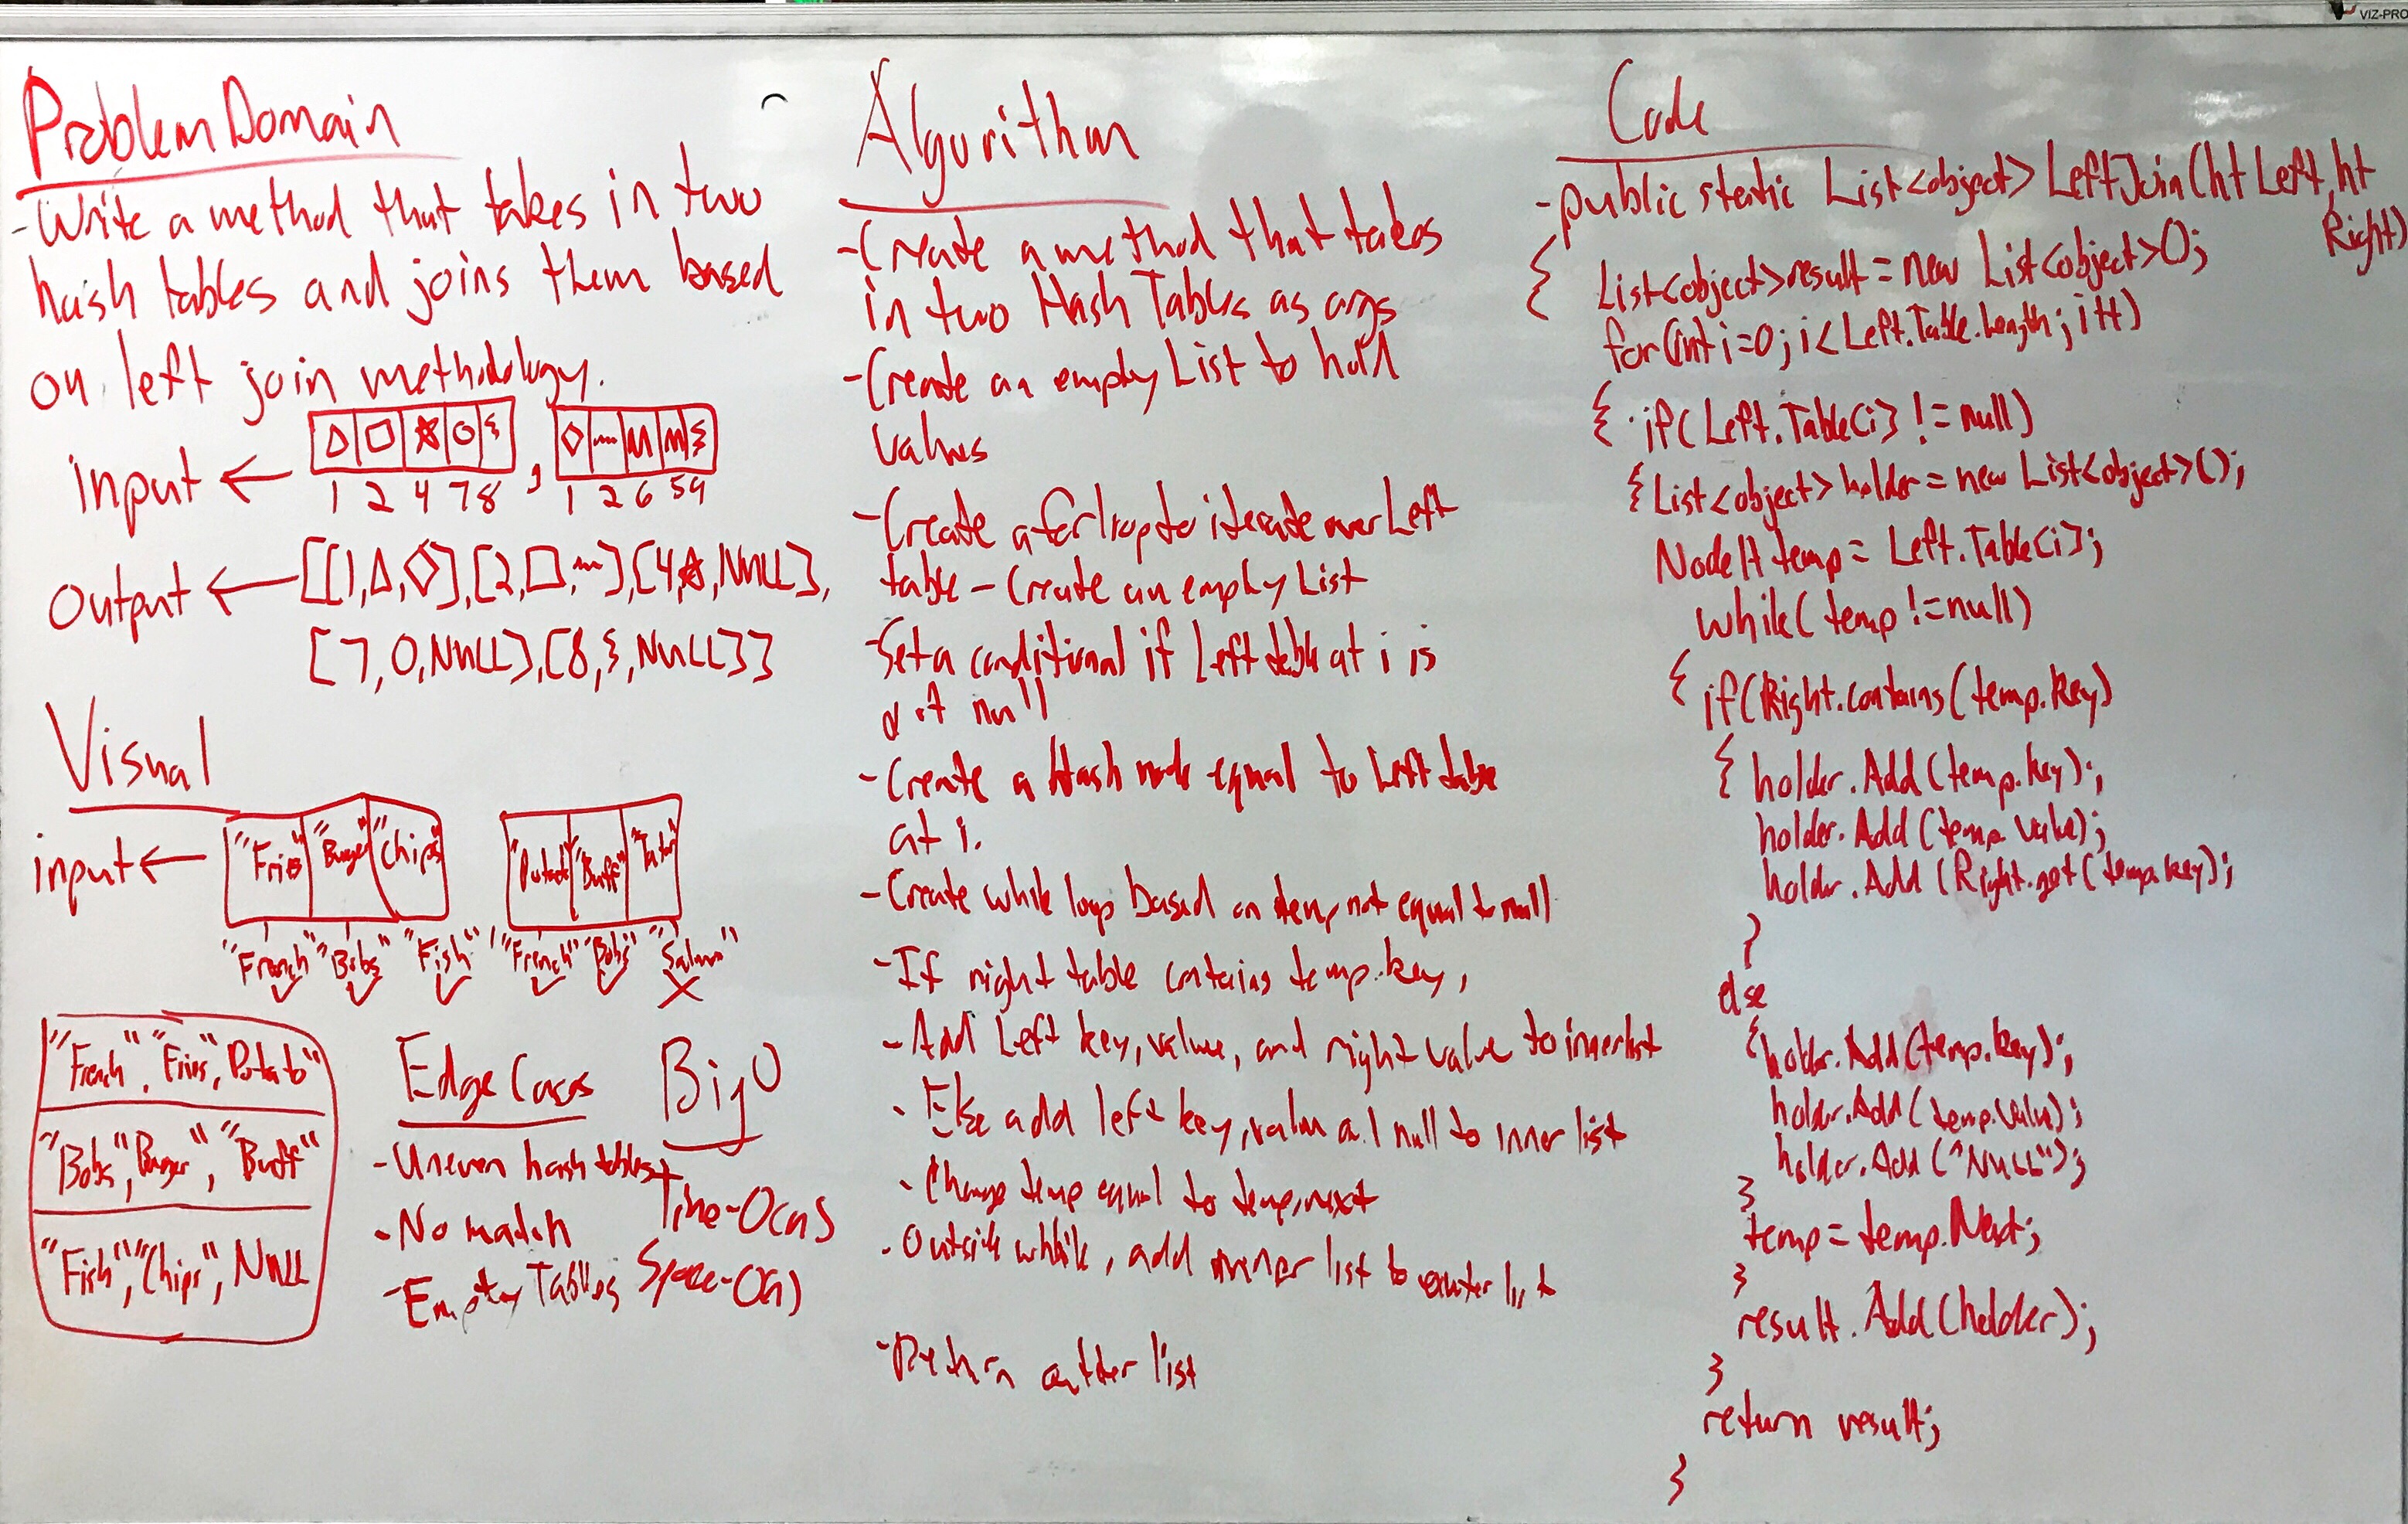 VIZ-PRO
Problem Domain
- Write a method that takes in two
hash tables and joins them based
on left join methodology.
input ←
1 2 4 7 8 , 1 2 6 5 9
Output ← [[1,△,◇],[2,□,~],[4,☆,NULL],
[7,O,NULL],[8,ξ,NULL]]
Visual
input ← "Fries" "Burger" "Chips" "Potato" "Buff"
"French" "Bobs" "Fish" "French" "Bobs"
"French", "Fries", Potato"
"Bobs", Burger", "Buff"
"Fish", "Chips", NULL
Edge Cases
- Uneven hash tables
- No match
- Empty Tables
Big O
Time - O(n)
Space - O(n)
Algorithm
- Create a method that takes
in two Hash Tables as args
- Create an empty List to hold
values
- Create a for loop to iterate over Left
table - Create an empty List
- Set a conditional if Left table at i is
not null
- Create a Hash node equal to Left table
at i.
- Create while loop based on temp not equal to null
- If right table contains temp.key,
- Add Left key, value, and right value to inner list
- Else add left key, value and null to inner list
- Change temp equal to temp.next
- Outside while, add inner list to outer list
- Return outter list
Code
- public static List<object> LeftJoin(ht Left, ht
Right)
{ List<object> result = new List<object>();
for(int i=0; i< Left.Table.Length; i++)
{ if( Left.Table[i] != null)
{ List<object> holder = new List<object>();
NodeH temp = Left.Table[i];
while( temp != null)
{ if(Right.contains(temp.key)
{ holder.Add(temp.key);
holder.Add(temp.Value);
holder.Add(Right.get(temp.key);
}
else
{ holder.Add(temp.key);
holder.Add(temp.Value);
holder.Add("NULL");
}
temp = temp.Next;
}
result.Add(holder);
}
return result;
}